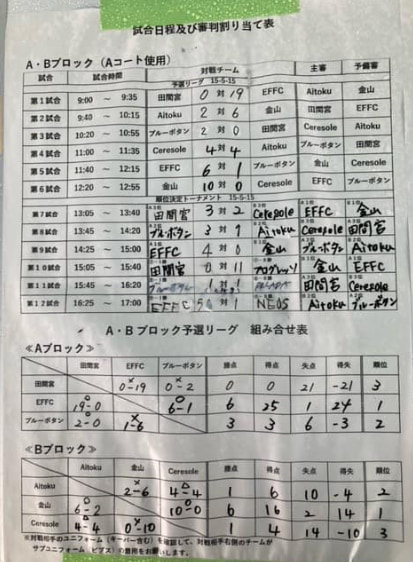 試合日程及び審判割り当て表
A・Bブロック（Aコート使用）
試合 試合時間 対戦チーム 主審 予備審
予選リーグ 15-5-15
第1試合 9:00 ～ 9:35 田間宮 0 対 19 EFFC Aitoku 金山
第2試合 9:40 ～ 10:15 Aitoku 2 対 6 金山 田間宮 EFFC
第3試合 10:20 ～ 10:55 ブルーボタン 2 対 0 田間宮 Ceresole Aitoku
第4試合 11:00 ～ 11:35 Ceresole 4 対 4 Aitoku ブルーボタン 田間宮
第5試合 11:40 ～ 12:15 EFFC 6 対 1 ブルーボタン 金山 Ceresole
第6試合 12:20 ～ 12:55 金山 10 対 0 Ceresole EFFC ブルーボタン
順位決定トーナメント 15-5-15
第7試合 13:05 ～ 13:40 田間宮 3 対 2 Ceresole EFFC 金山
第8試合 13:45 ～ 14:20 ブルーボタン 3 対 Aitoku Ceresole 田間宮
第9試合 14:25 ～ 15:00 EFFC 4 対 0 金山 ブルーボタン Aitoku
第10試合 15:05 ～ 15:40 田間宮 0 対 11 金山 EFFC
第11試合 15:45 ～ 16:20 ブルーボタン 1 対 1 田間宮 Ceresole
第12試合 16:25 ～ 17:00 EFFC 対 1 NEOS Aitoku ブルーボタン
A・Bブロック予選リーグ 組み合せ表
≪Aブロック≫
田間宮 EFFC ブルーボタン 勝点 得点 失点 得失 順位
田間宮 × 0-19 × 0-2 0 0 21 -21 3
EFFC ○ 19-0 ○ 6-1 6 25 1 24 1
ブルーボタン ○ 2-0 × 1-6 3 3 6 -3 2
≪Bブロック≫
Aitoku 金山 Ceresole 勝点 得点 失点 得失 順位
Aitoku × 2-6 △ 4-4 1 6 10 -4 2
金山 ○ 6-2 ○ 10-0 6 16 2 14 1
Ceresole △ 4-4 × 0-10 1 4 14 -10 3
※対戦相手のユニフォーム（キーパー含む）を確認して、対戦相手右側のチームが
サブユニフォーム（ビブス）の着用をお願いします。